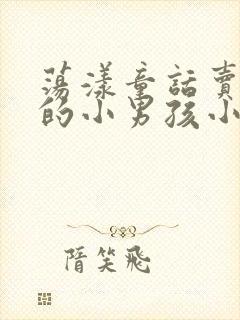 荡漾童話賣
的小男孩小
隋笑飛